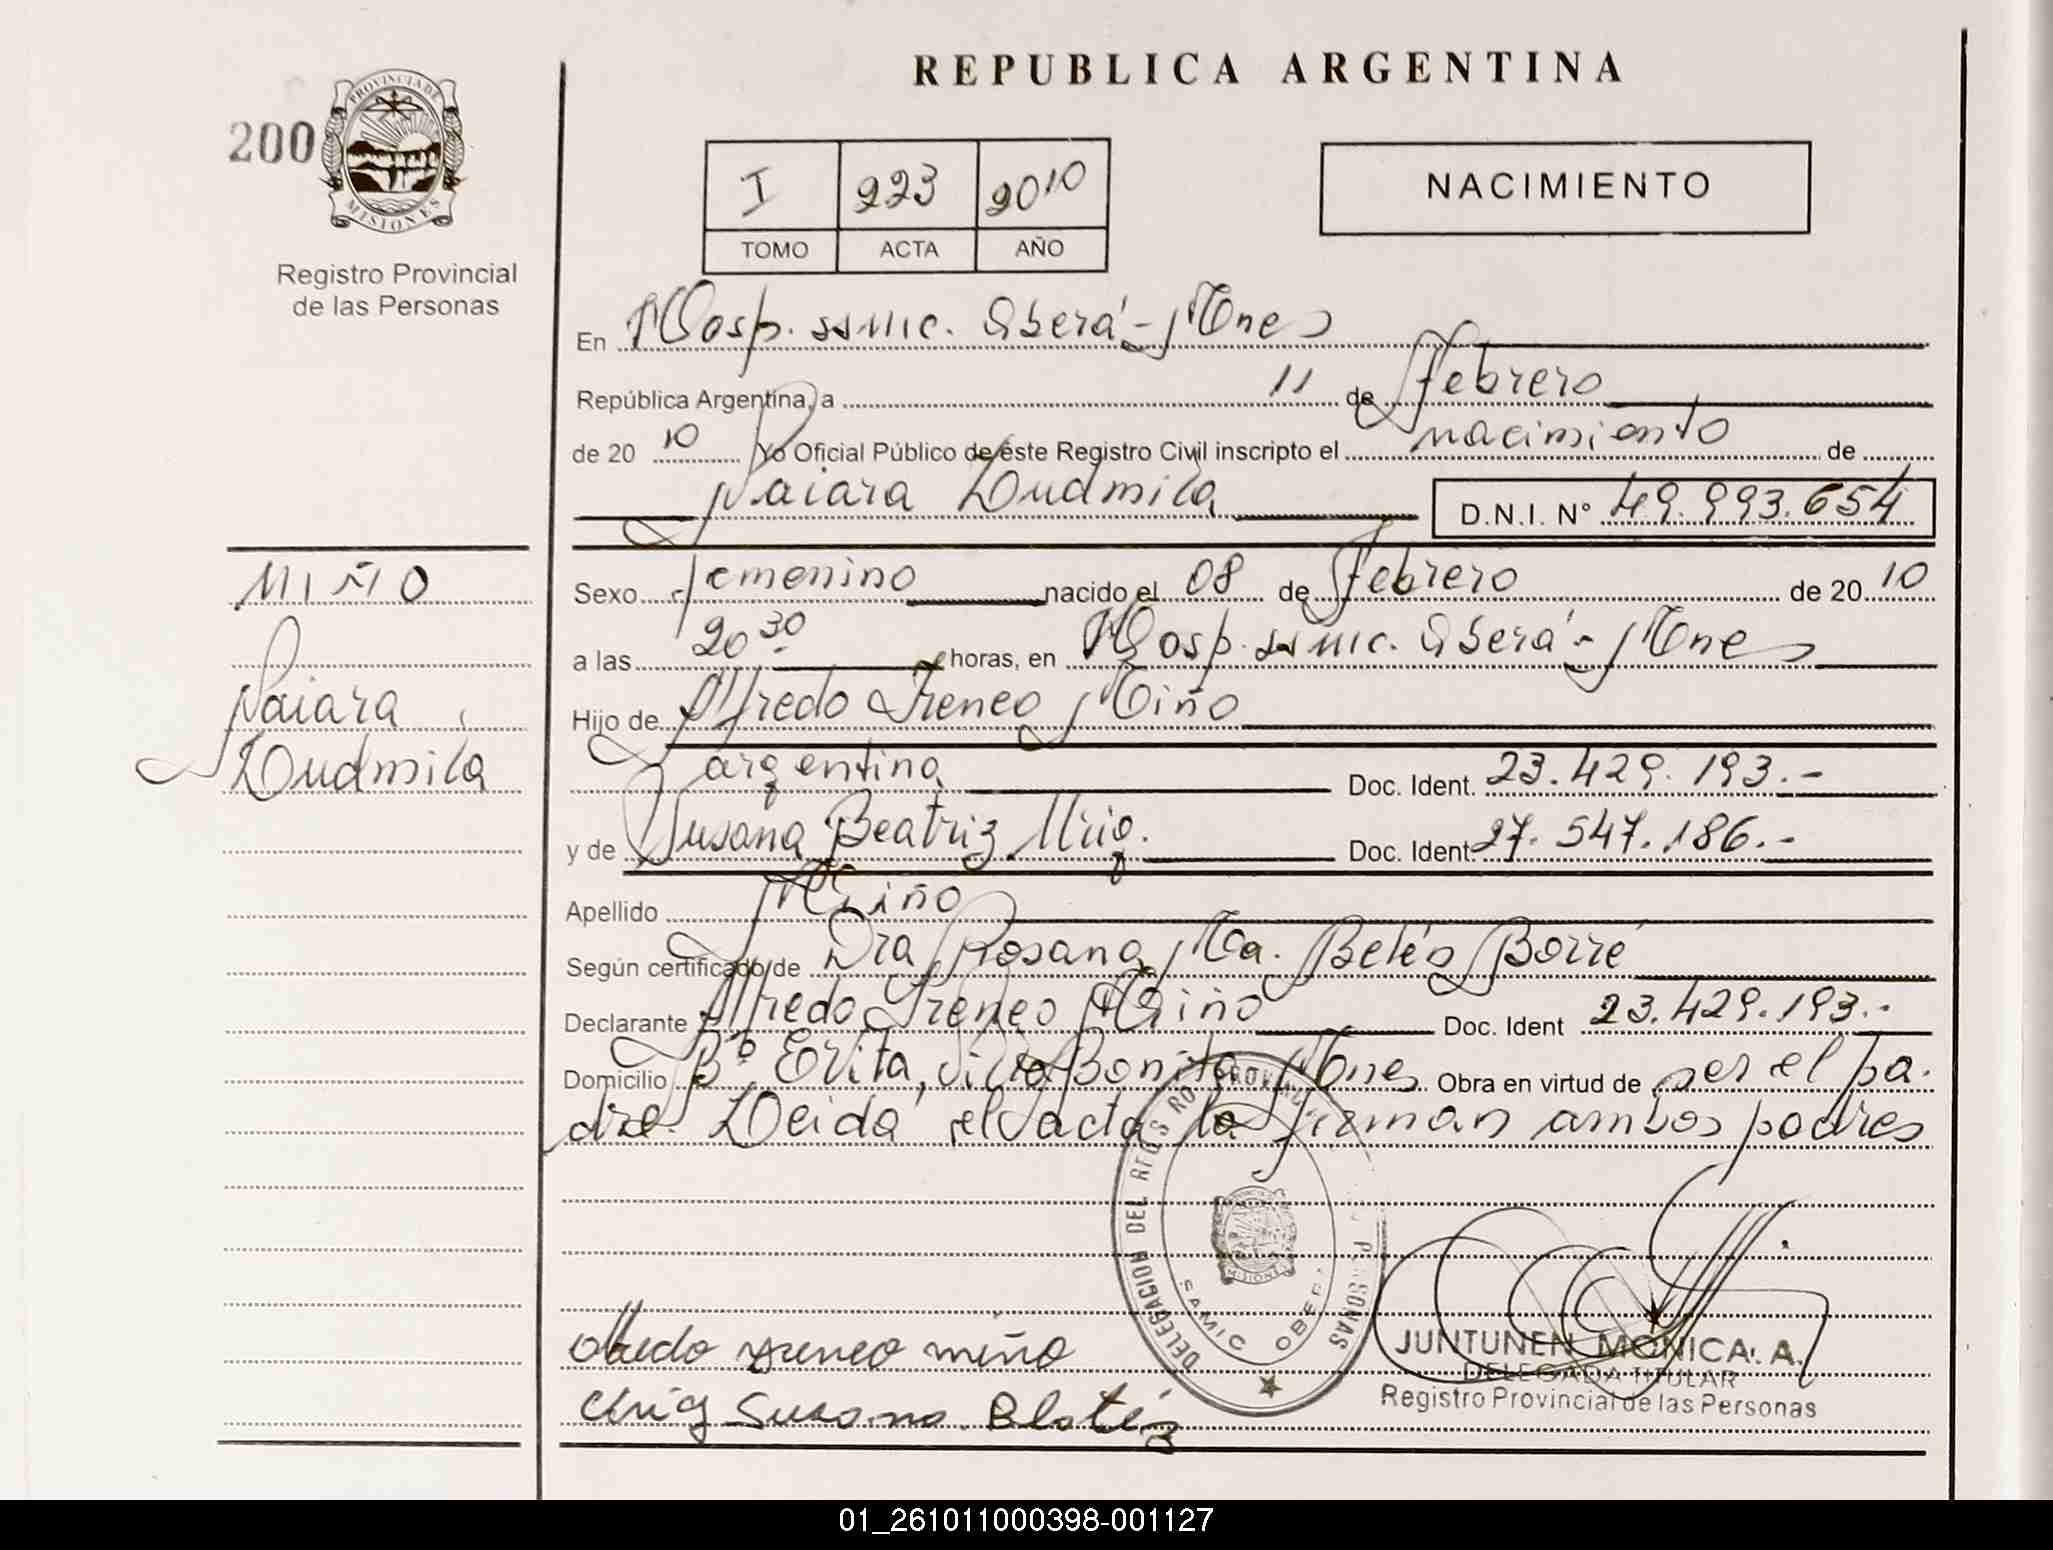 REPUBLICA ARGENTINA
200
PROVINCIA DE
MISIONES
Registro Provincial
de las Personas
I 223 2010
TOMO ACTA AÑO
NACIMIENTO
En Hosp. ssmic. Oberá - Mnes
República Argentina, a 11 de Febrero
de 20 10 Yo Oficial Público de éste Registro Civil inscripto el nacimiento de
Naiara Ludmila D.N.I. N° 49.993.654
MIÑO
Naiara
Ludmila
Sexo femenino nacido el 08 de Febrero de 20 10
a las 20 30 horas, en Hosp. ssmic. Oberá - Mnes
Hijo de Alfredo Ireneo Miño
argentina Doc. Ident. 23.429.193.-
y de Susana Beatriz Doc. Ident. 27.547.186.-
Apellido Miño
Según certificado de Dra Rosana Ma. Belés Borré
Declarante Alfredo Ireneo Miño Doc. Ident 23.429.193.-
Domicilio B° Evita, Bonita Mnes Obra en virtud de ser el pa.
dre Leida el acta la firman ambos padres
DELEGACION DEL REGIS RO PROVINCIAL PERSONAS
SAMIC OBERA
MISIONES
Ireneo miño
Susana
JUNTUNEN MONICA. A.
DELEGADA TITULAR
Registro Provincial de las Personas
01_261011000398-001127